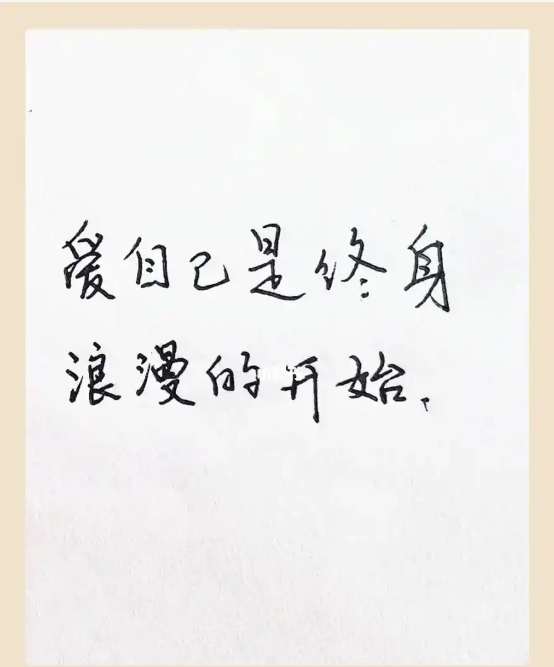 爱自己是终身
浪漫的开始.